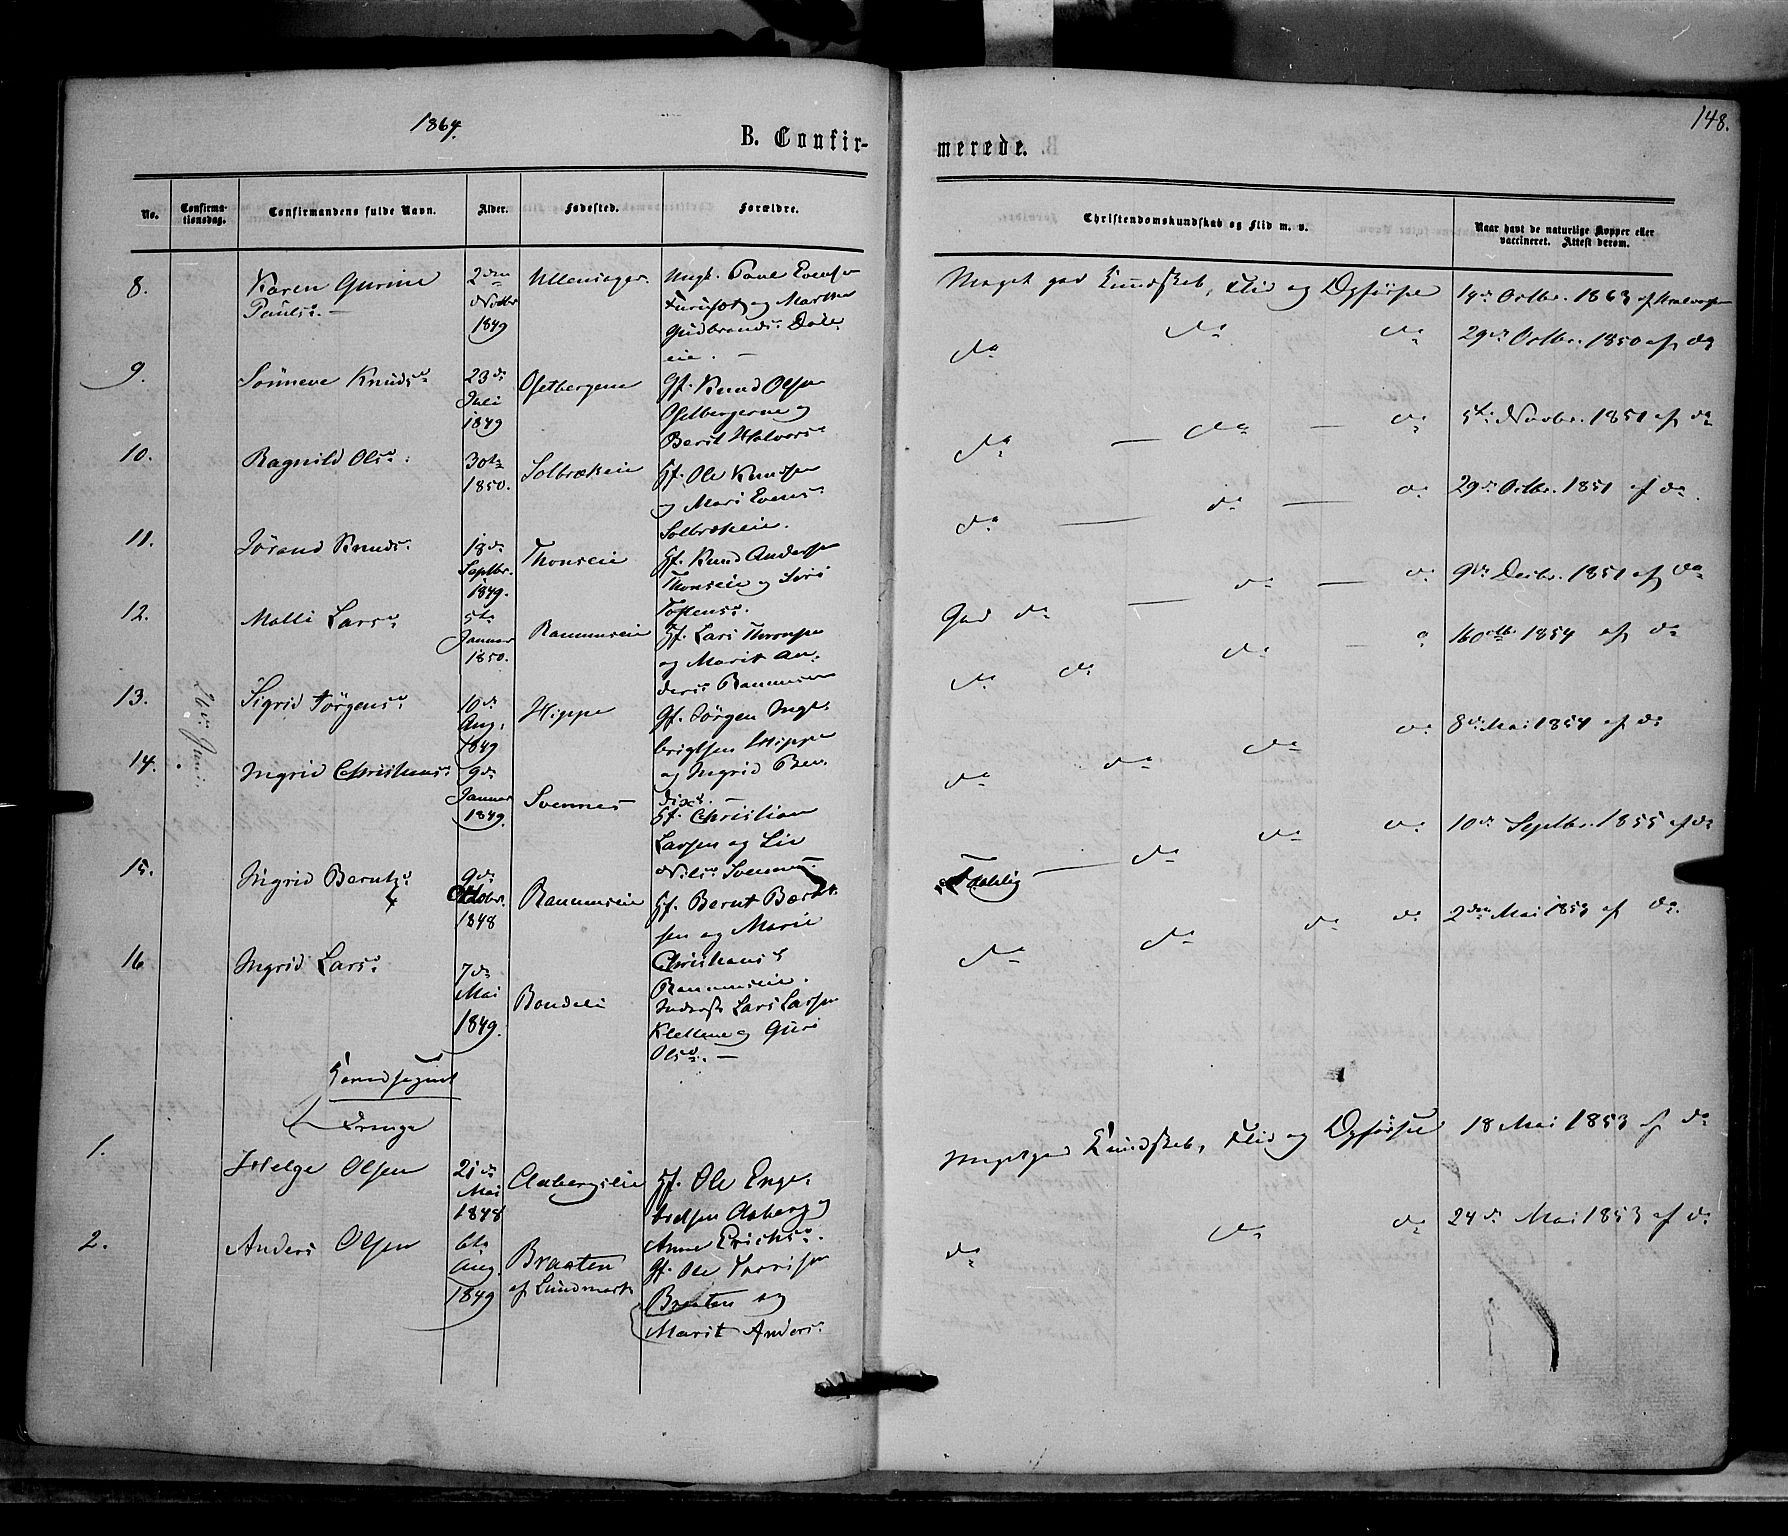 1864.
148.
B. Confir-
merede.
No.
Confirma-
tionsdag.
Confirmandens fulde Navn.
Alder.
Fødested.
Forældre.
Christendomskundskab og Flid m. v.
Naar havt de naturlige Kopper eller
vaccineret. Attest derom.
8.
Karen Gurine
Pauls.
2den
Novbr
1849
Ullensager.
Ungk. Paul Evensen
og Marthe
Gudbrands.
eie.
Meget god Kundskab, Flid og Opførsel
14de Octbr. 1863 af
9.
Sønneve Knuds.
23de
Juli
1849
Ofstbergene
Gf. Knud Olsen
Ofstbergene og
Berit Halvors.
do do do
29de Octbr. 1850 af do
10.
Ragnild Ols.
30te
1850.
Solbrækeie
Hf. Ole Knudsen
og Mari Evens.
Solbrækeie.
do — do — do
5te Novbr. 1851 af do
11.
Jørand Knuds.
18de
Septbr.
1849.
Thonseie
Hf. Knud Andersen
Thonseie og Siri
Tostens.
do — do — do
29de Octbr. 1851 af do.
12.
Malli Lars.
5te
Januar
1850.
Rannumseie
Hf. Lars Thronsen
og Marit An-
ders.
God do — do — do
9de Decbr. 1851 af do
13.
Sigrid Jørgens.
10de
Aug.
1849
Hippe
Gf. Jørgen Inge-
brigtsen Hippe
og Ingrid
do do do
16 Octbr. 1854 af do
Juni
14.
Ingrid Christians.
9de
Januar
1849.
Svennes
Hf. Christian
Larsen og Liv
Nils. Svennes.
do do do do
8de Mai 1854 af do
15.
Ingrid Bernts.
9de
Octobr.
1848
Rannumseie
Hf. Bernt
sen og Marie
Christians.
Rannumseie.
Taalelig — do do do
10de Septbr. 1855 af do
16
Ingrid Lars.
7de
Mai
1849.
Bondelie
Inderst Lars Larsen
Klettene og Guri
Ols. —
do do do do
2den Mai 1853 af do.
Drenge
1.
Helge Olsen
21de
Mai
1848
Aabergseie
Hf. Ole Enge-
bretsen Aaberg og
Anne Erichs.
Meget god Kundskab, Flid og Opførsel
18 Mai 1853 af do
2.
Anders Olsen
6te
Aug.
1849
Braaten
af Lundmark
Gf. Ole
Braaten og
Marit Anders.
do do do
24de Mai 1853 af do